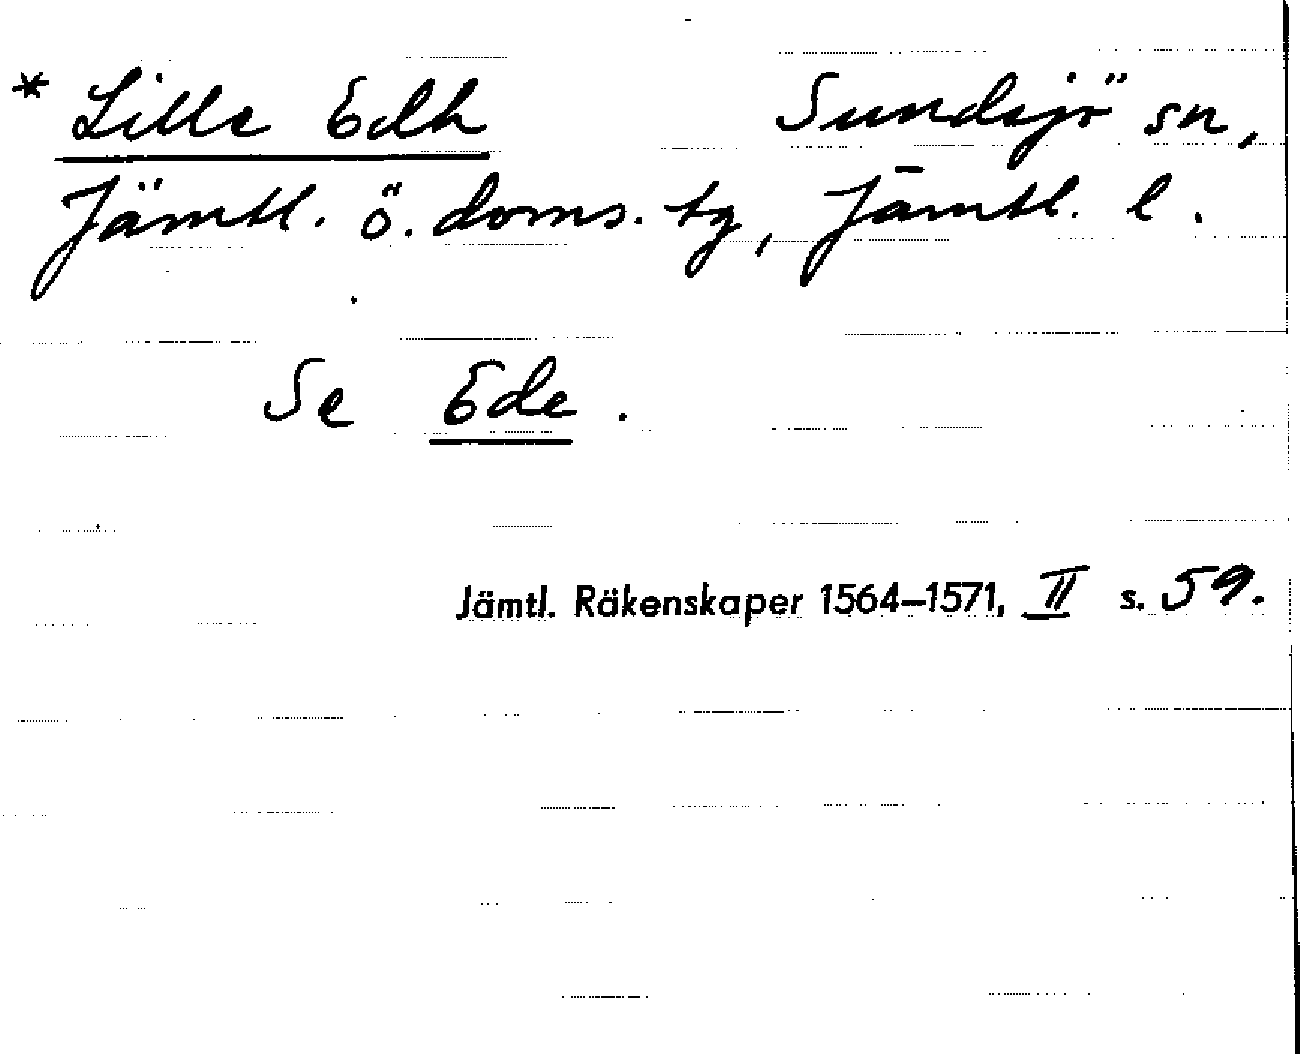 * Lille Edh Sundsjö sn,
Jämtl. ö. doms. tg, Jämtl. l.
Se Ede.
Jämtl. Räkenskaper 1564–1571, II s. 59.